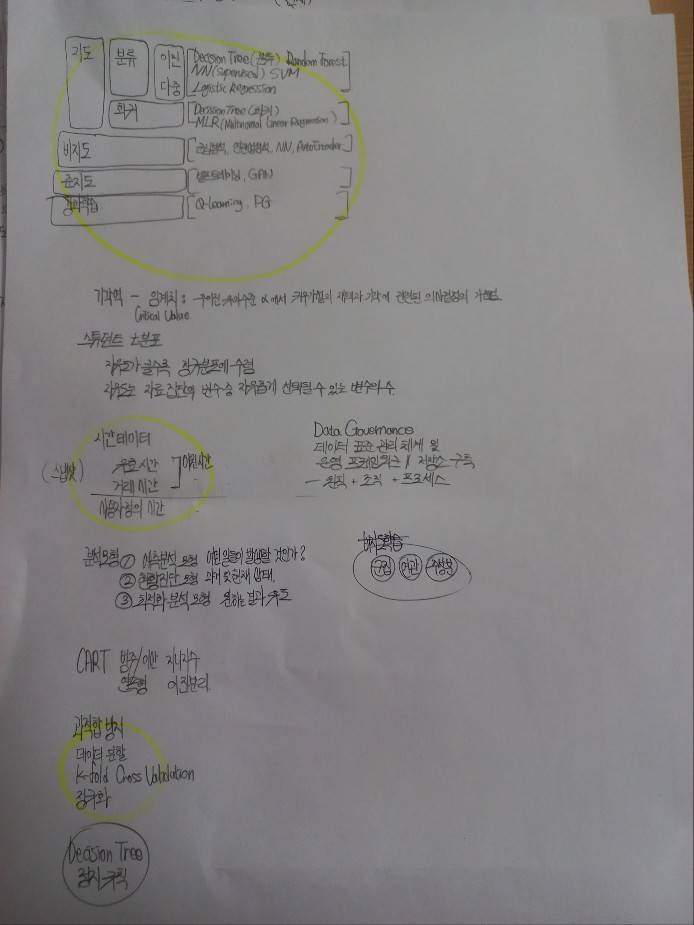 지도 분류 이진 Decision Tree(분류) Random Forest
NN(Supervised) SVM
다중 Logistic Regression
회귀 Decision Tree(회귀)
MLR(Multinomial Linear Regression)
비지도 군집분석, 연관성분석, NN, AutoEncoder
준지도 셀프트레이닝, GAN
강화학습 Q-Learning, PG
기각역 - 임계치 : 주어진 유의수준 α에서 귀무가설의 채택과 기각에 관련된 의사결정의
Critical Value
스튜던트 t분포
자유도가 클수록 정규분포에 수렴
자유도는 자료집단의 변수중 자유롭게 선택될 수 있는 변수의 수
시간데이터
(스냅샷) 유효시간 이원시간
거래시간
사용자정의 시간
Data Governance
데이터 표준 관리 체계 및
운영 프레임워크 / 저장소 구축
- 원칙 + 조직 + 프로세스
분석모형 ① 예측분석 모형 어떤 일들이 발생할 것인가?
② 현황진단 모형 과거 및 현재 상태
③ 최적화 분석 모형 원하는 결과 유도
비지도학습
군집 연관 주성분
CART 범주/이산 지니지수
연속형 이진분리
과적합 방지
데이터 분할
K-fold Cross Validation
정규화
Decision Tree
정지규칙